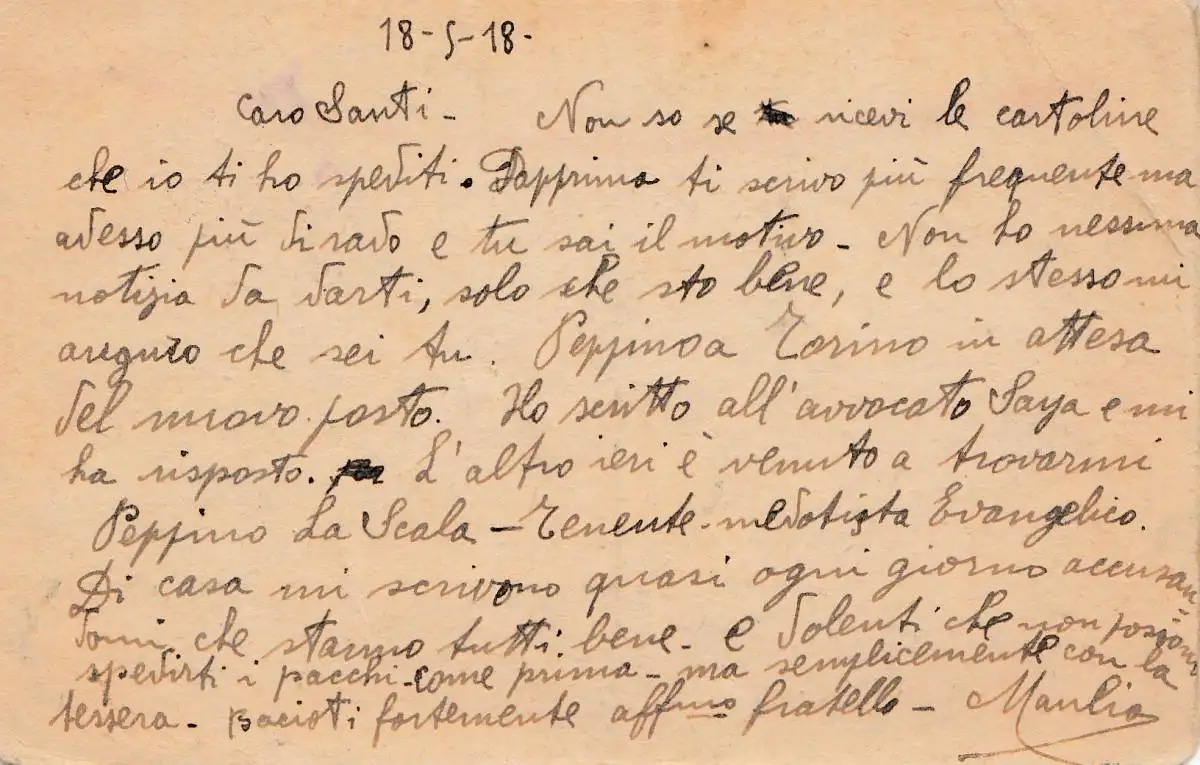 18-5-18-
Caro Santi- Non so se ricevi le cartoline
che io ti ho spediti. Dapprima ti scrivo più frequente ma
adesso più di rado e tu sai il motivo- Non ho nessuna
notizia da darti, solo che sto bene, e lo stesso mi
auguro che sei tu. Peppino a Torino in attesa
del nuovo posto. Ho scritto all'avvocato Saya e mi
ha risposto. L'altro ieri è venuto a trovarmi
Peppino La Scala - Tenente- Evangelico.
Di casa mi scrivono quasi ogni giorno accusan=
domi che stanno tutti bene- e dolenti che non possono
spedirti i pacchi- come prima- ma semplicemente con la
tessera- Bacioti fortemente affmo fratello- Manlio